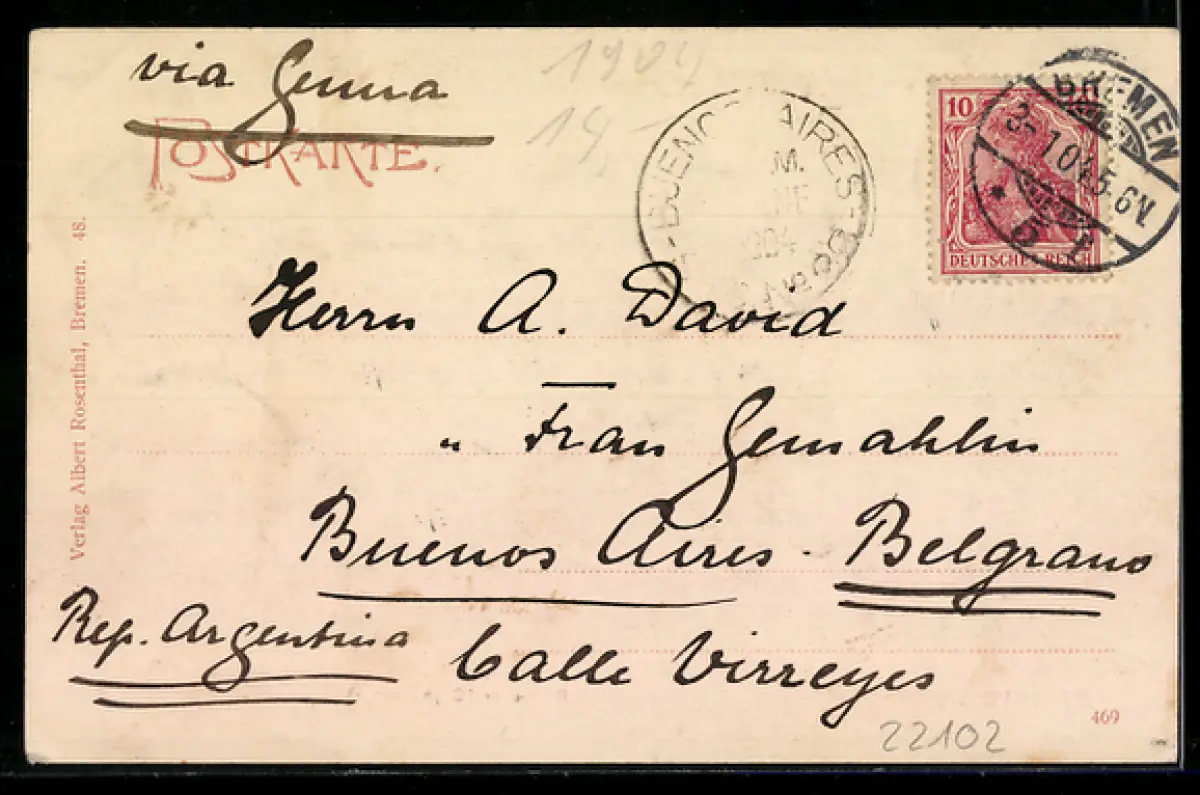 via Genua
1904
19,-
POSTKARTE.
BUENOS AIRES
904
BREMEN
3. 1.04.5.6N.
5
10
DEUTSCHES REICH
Herrn A. David
u Frau Gemahlin
Buenos Aires. Belgrano
Rep. Argentina
Calle Virreyes
Verlag Albert Rosenthal, Bremen. 48.
469
22102